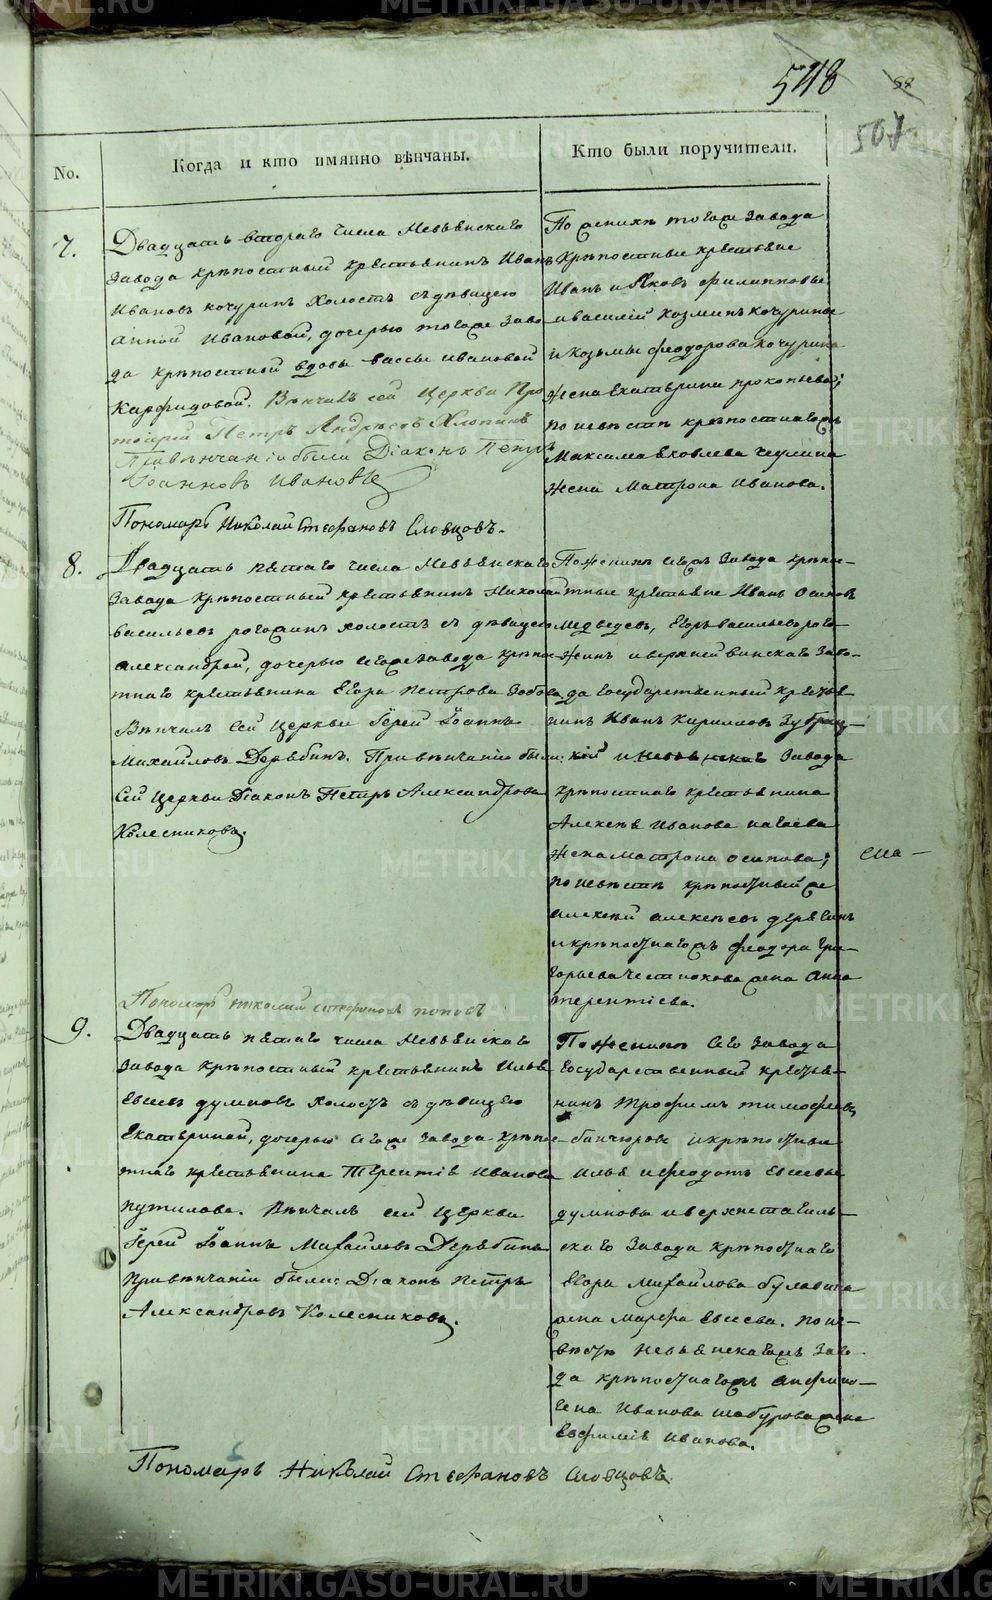 548
58
507
No.
Когда и кто имянно вѣнчаны.
Кто были поручители.
7.
Двадцать втораго числа Невьянскаго
завода крѣпостный крестьянинъ Иванъ
Ивановъ Кочуринъ холостъ съ дѣвицею
Анной Ивановой, дочерью тогоже заво
да крѣпостной вдовы Вассы Ивановой
Карфидовой. Вѣнчалъ сей Церкви Про
тоіерей Петръ Андреевъ Хлопинъ
При вѣнчаніи были Діаконъ Петръ
Іоанновъ Ивановъ
Пономарь Николай Стефановъ Словцовъ.
По женихѣ тогоже завода
крѣпостные крестьяне
Иванъ и Яковъ Филипповы
и Василій Козминъ Кочурины
и Козьмы Феодорова Кочурина
жена Екатерина Прокопьева;
по невѣстѣ крѣпостнагожъ
Максима Яковлева
жена Матрона Иванова.
8.
Двадцать пятаго числа Невьянскаго
завода крѣпостный крестьянинъ Николай
Васильевъ Рогожинъ холостъ съ дѣвицею
Александрой, дочерью сегоже завода крѣпос
тнаго крестьянина Егора Петрова Зобова
Вѣнчалъ сей Церкви Іерей Іоаннъ
Михайловъ Дерябинъ. При вѣнчаніи были:
сей Церкви Діаконъ Петръ Александровъ
Колесниковъ.
Пономарь Николай Стефановъ Поповъ
По женихѣ сегожъ завода крѣпос-
тные крестьяне Иванъ Осиповъ
Медведевъ, Егоръ Васильевъ Рого-
жинъ и Верхнейвинскаго заво-
да государственный крестья
нинъ Иванъ Кириловъ Зубриц-
кій и Невьянскаго завода
крѣпостнаго крестьянина
Алексѣя Иванова Нагаева
жена Матрона Осипова;
по невѣстѣ крѣпостный же
Алексѣй Алексѣевъ Дерябинъ
и крѣпостнагожъ Феодора Гри-
горьева Честнохова жена Анна
Терентіева.
9.
Двадцать пятаго числа Невьянскаго
завода крѣпостный крестьянинъ Илья
Евсеевъ Думновъ холостъ съ дѣвицею
Екатериной, дочерью сегоже завода крѣпос
тнаго крестьянина Терентія Иванова
Путилова. Вѣнчалъ сей Церкви
Іерей Іоаннъ Михайловъ Дерябинъ
При вѣнчаніи были: Діаконъ Петръ
Александровъ Колесниковъ.
По женихѣ сего завода
государственный крестья-
нинъ Трофимъ Тимофеевъ
и крѣпостные
Илья и Феодотъ Евсеевы
Думновы и Верхнетагиль-
скаго завода крѣпостнаго
Егора Михайлова Булавина
жена Марфа Евсеева. По не-
вѣстѣ Невьянскагожъ заво-
да крѣпостнагожъ Анфино-
гена Иванова Шабурова жена
Евфимія Иванова.
Пономарь Николай Стефановъ Словцовъ
METRIKI.GASO-URAL.RU